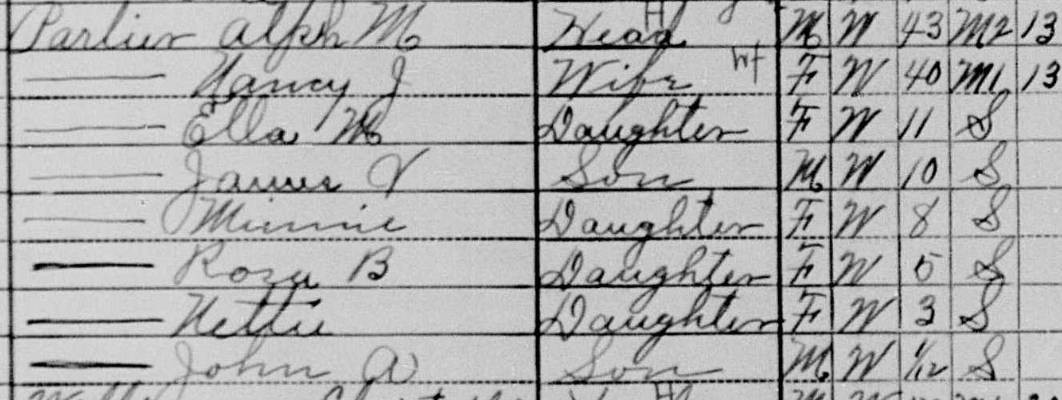 Parlier Alph M Head M W 43 M2 13
Nancy J Wife F W 40 M1 13
Ella M Daughter F W 11 S
James V Son M W 10 S
Minnie Daughter F W 8 S
Rosa B Daughter F W 5 S
Nettie Daughter F W 3 S
John A Son M W 1/12 S